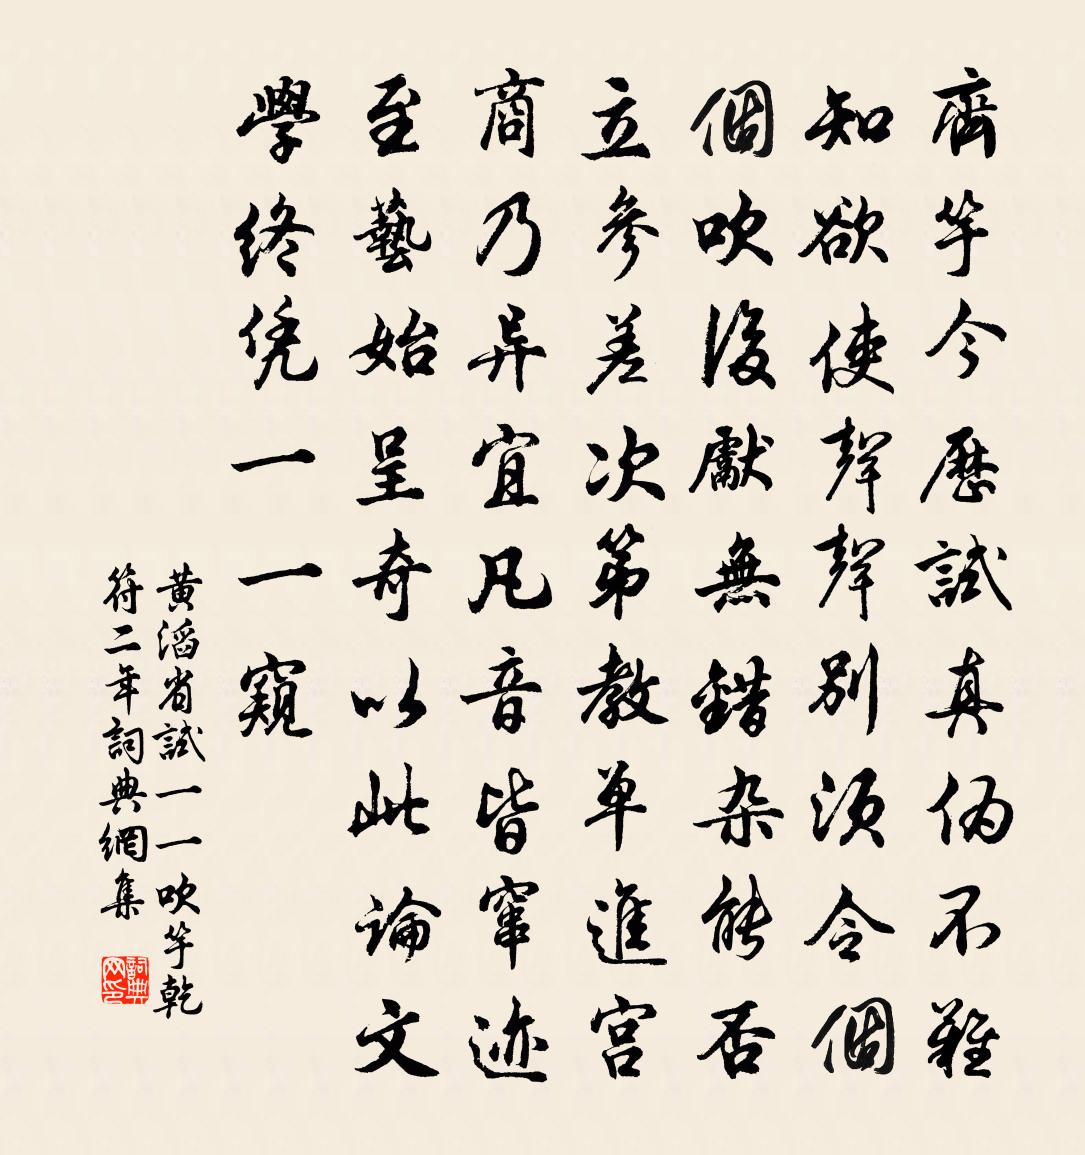 齊竽今歷試真偽不難
知欲使聲聲別須令個
個吹後獻無錯杂能否
立參差次第教单進宮
商乃异宜凡音皆窜迹
至藝始呈奇以此論文
學終凭一一窺
黄滔省試一一吹竽乾
符二年詞典網集
詞典网印